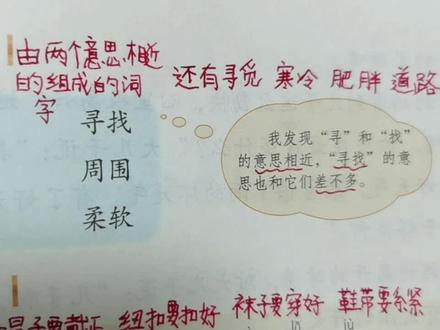 由两个意思相近
的组成的词
字
还有寻觅 寒冷 肥胖 道路
寻找
周围
柔软
我发现“寻”和“找”
的意思相近，“寻找”的意
思也和它们差不多。
子要戴正 纽扣要扣好 袜子要穿好 鞋带要系紧